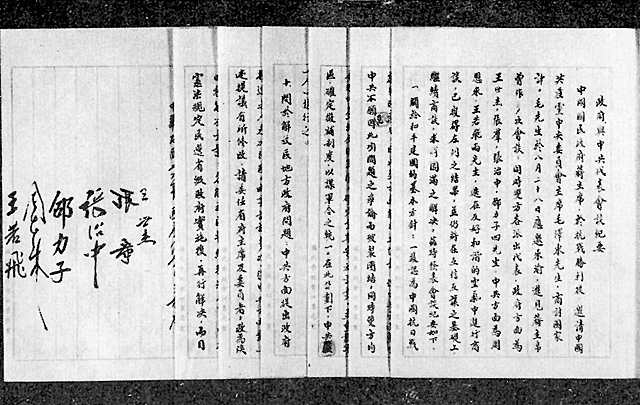 政府與中共代表會談紀要
中國國民政府蔣主席於抗戰勝利後邀請中國
共產黨中央委員會主席毛澤東先生商討國家
計毛先生於八月二十八日應邀來渝進見蔣主席
曾作多次會談同時雙方各派出代表政府方面為
王世杰張羣張治中邵力子四先生中共方面為周
恩來王若飛兩先生迭在友好和諧的空氣中進行商
談已獲得左列之結果並仍將在互信互讓之基礎上
繼續商談求得圓滿之解決茲特發表會談紀要如下
一關於和平建國的基本方針一致認為中國抗日戰
中共不願因此項問題之爭論而破裂團結同時雙方均
區確定徵補制度以謀軍令之統一在此計劃下中共
十關於解放區地方政府問題中共方面提出政府
述提議有所修改請委任省府主席及委員者改為陝
憲法規定民選省級政府實施後再行解決而目
王世杰
張羣
張治中
邵力子
周恩來
王若飛